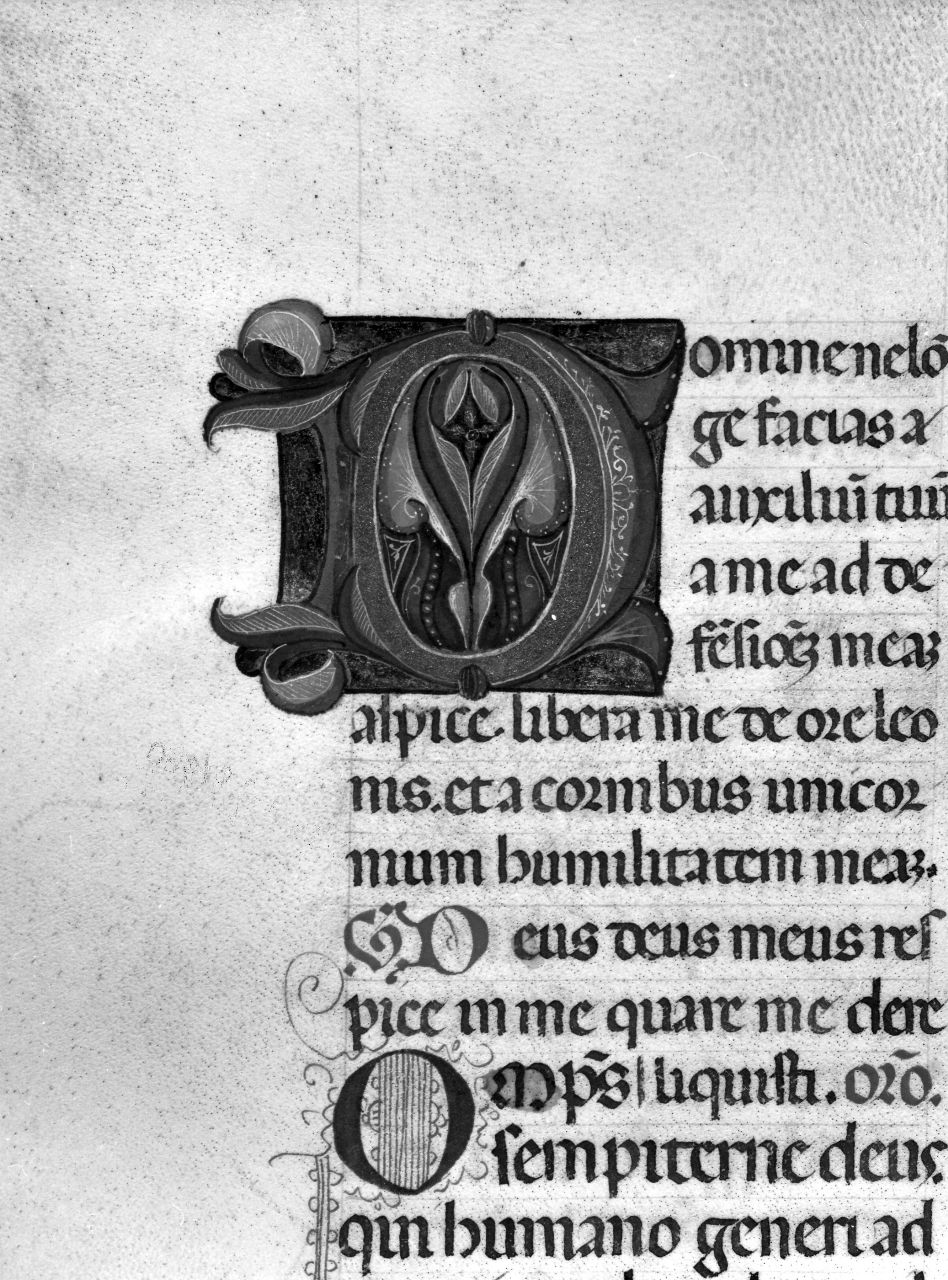 Domine ne lõ
ge facias a
auxiliũ tuũ
a me ad de
fẽsioꝫ meaꝫ
aspice. libera me de ore leo
nis. et a cornibus unicor
nium humilitatem meaꝫ.
℣ Deus deus meus res
pice in me quare me dere
Omp̃s liquisti. orõ.
sempiterne deus.
qui humano generi ad